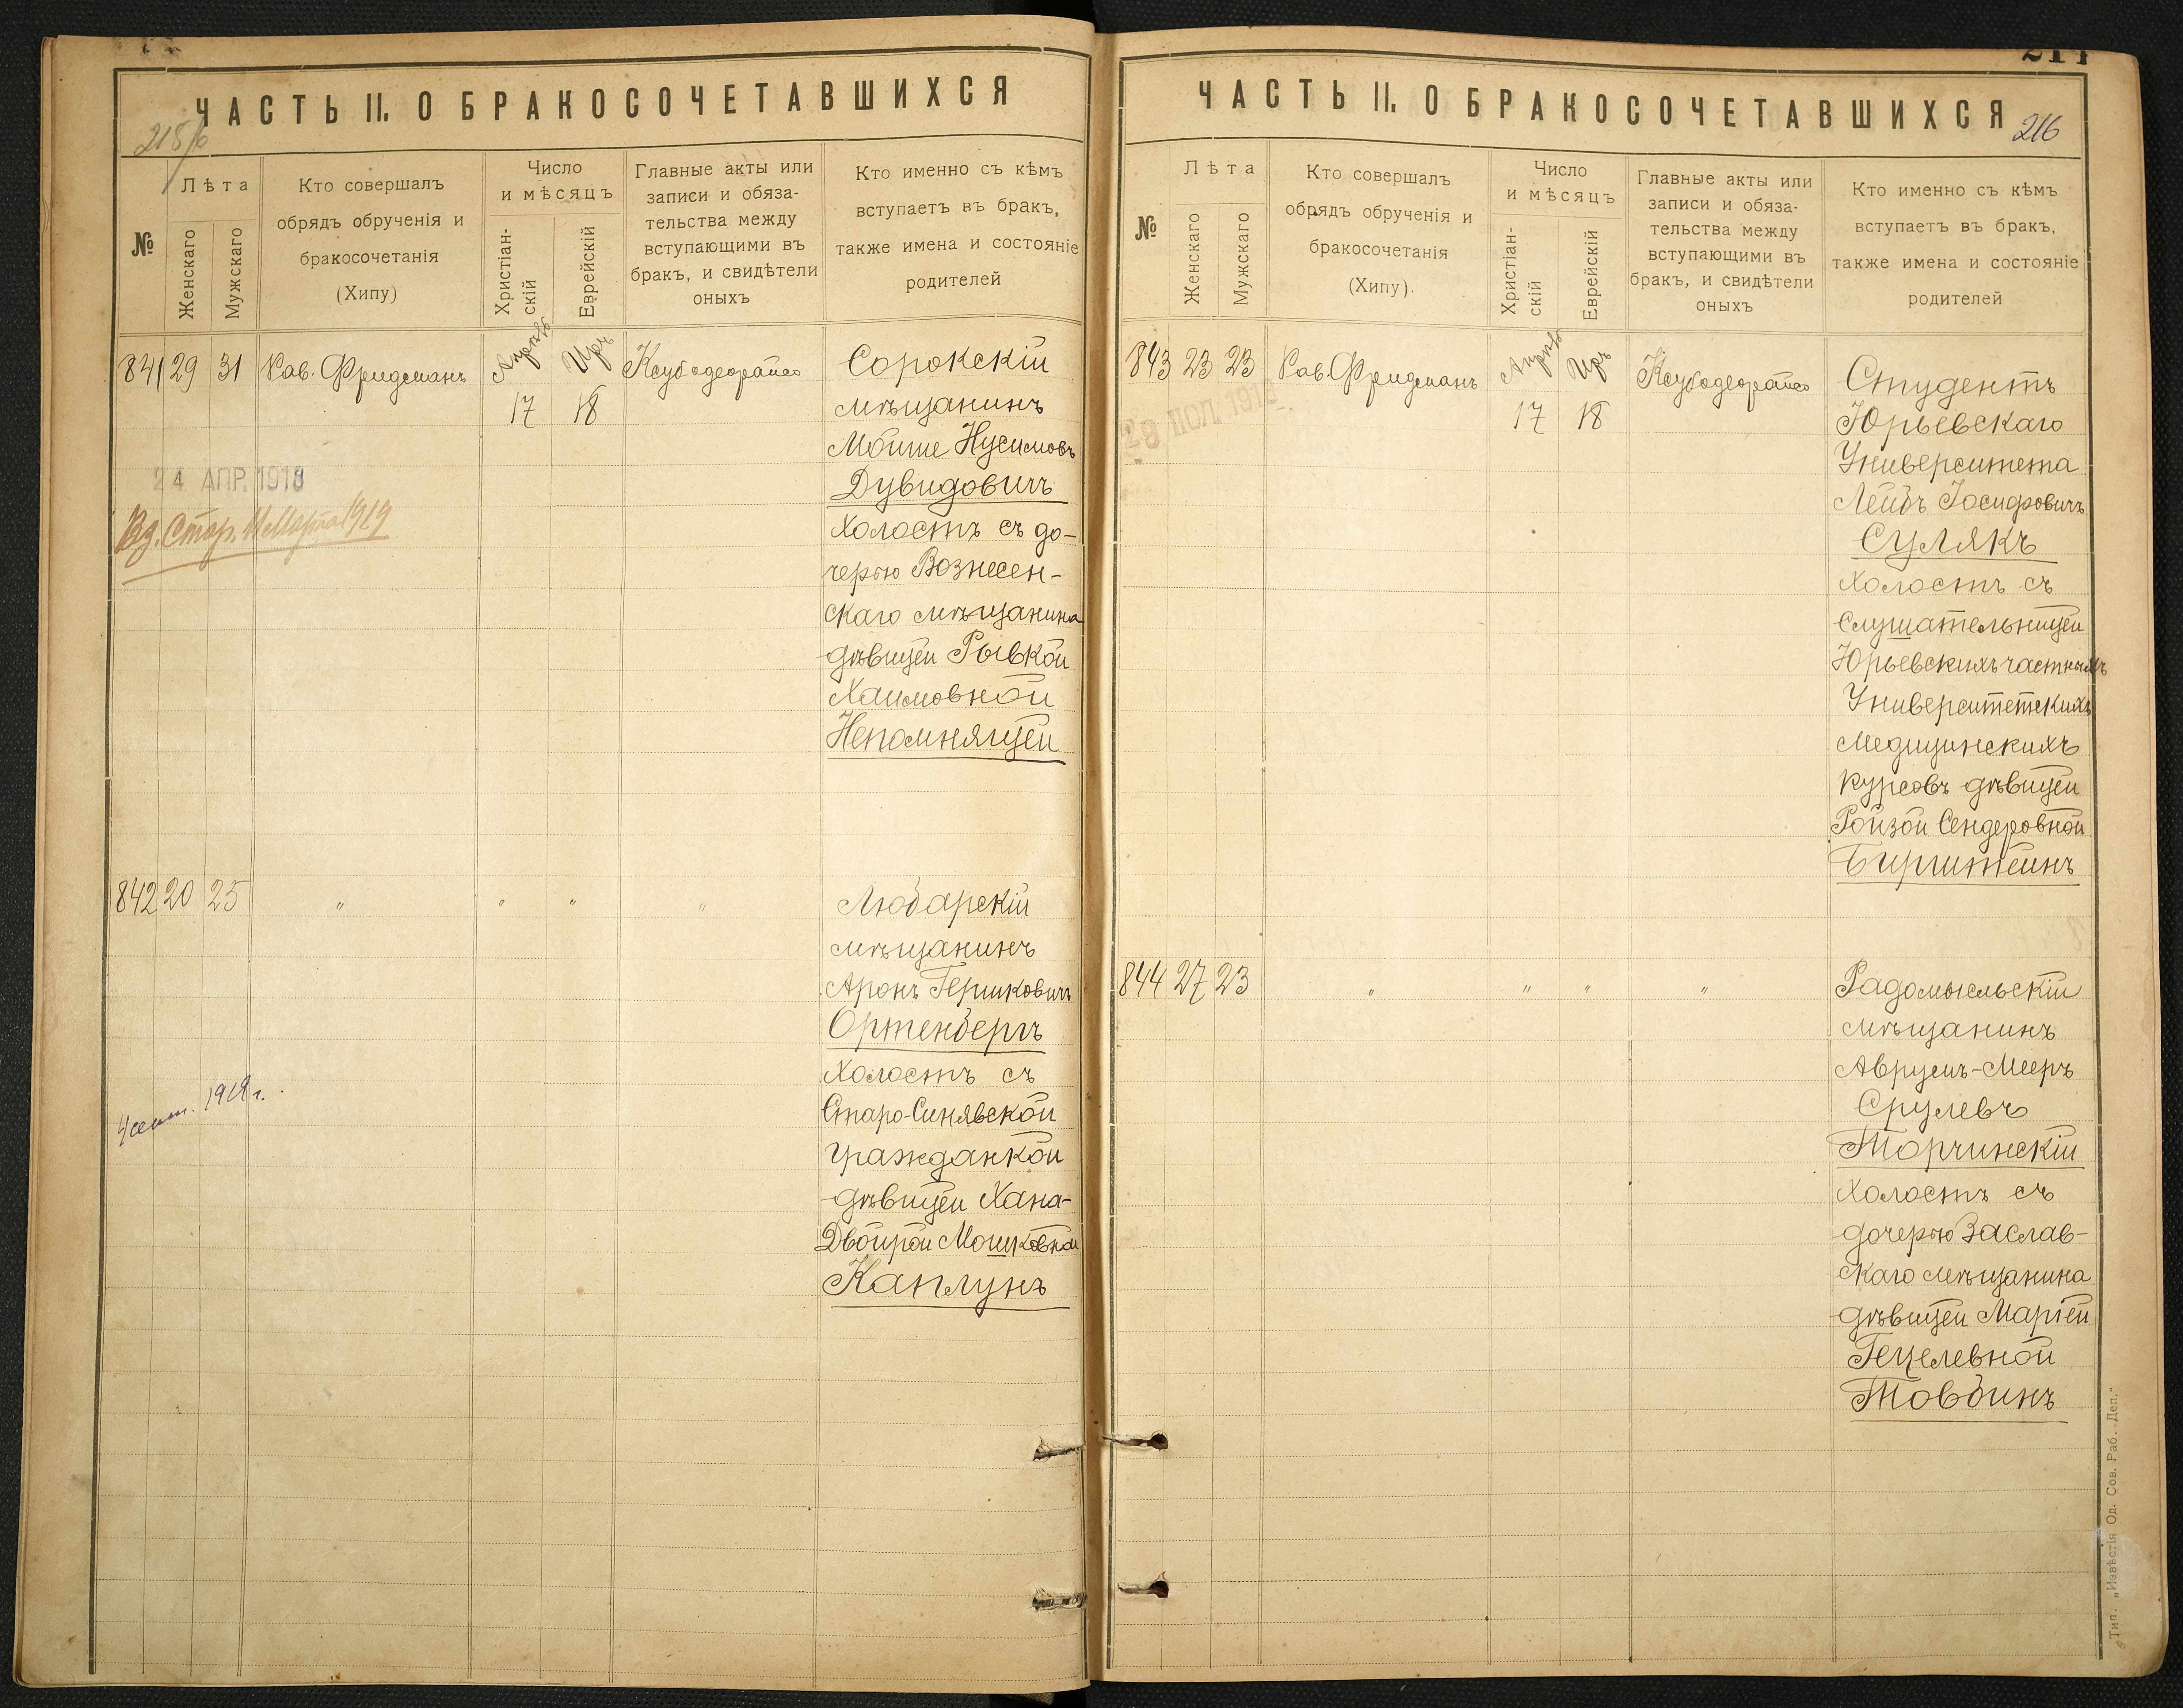 ЧАСТЬ II. О БРАКОСОЧЕТАВШИХСЯ
№
Лѣта
Женскаго
Мужскаго
Кто совершалъ
обрядъ обрученія и
бракосочетанія
(Хипу)
Число
и мѣсяцъ
Христіан-
скій
Еврейскій
Главные акты или
записи и обяза-
тельства между
вступающими въ
бракъ, и свидѣтели
оныхъ
Кто именно съ кѣмъ
вступаетъ въ бракъ,
также имена и состояніе
родителей
841 29 31 Рав. Фридманъ
Апрѣль
17
Иръ
18
Ксубодеорайсо
Сорокскій
мѣщанинъ
Мойше Нусимовъ
Дувидовичъ
холостъ съ до-
черью Вознесен-
скаго мѣщанина
дѣвицей Рывкой
Хаимовной
Непомнящей
24 АПР. 1918
842 20 25 " " " "
Любарскій
мѣщанинъ
Аронъ Гершковичъ
Ортенбергъ
холостъ съ
Старо-Синявской
гражданкой
дѣвицей Хана-
Двойрой Мошковной
Каплунъ
ЧАСТЬ II. О БРАКОСОЧЕТАВШИХСЯ
216
№
Лѣта
Женскаго
Мужскаго
Кто совершалъ
обрядъ обрученія и
бракосочетанія
(Хипу).
Число
и мѣсяцъ
Христіан-
скій
Еврейскій
Главные акты или
записи и обяза-
тельства между
вступающими въ
бракъ, и свидѣтели
оныхъ
Кто именно съ кѣмъ
вступаетъ въ бракъ,
также имена и состояніе
родителей
843 23 23 Рав. Фридманъ
Апрѣль
17
Иръ
18
Ксубодеорайсо
Студентъ
Юрьевскаго
Университета
Лейбъ Іосифовичъ
Сулякъ
холостъ съ
слушательницей
Юрьевскихъ частныхъ
Университетскихъ
Медицинскихъ
курсовъ дѣвицей
Ройзой Сендеровной
Бирштейнъ
844 27 23 " " " "
Радомысльскій
мѣщанинъ
Аврумъ-Мееръ
Срулевъ
Торчинскій
холостъ съ
дочерью Заслав-
скаго мѣщанина
дѣвицей Маріей
Гецелевной
Товбинъ
Тип. „Извѣстія Од. Сов. Раб. Деп."